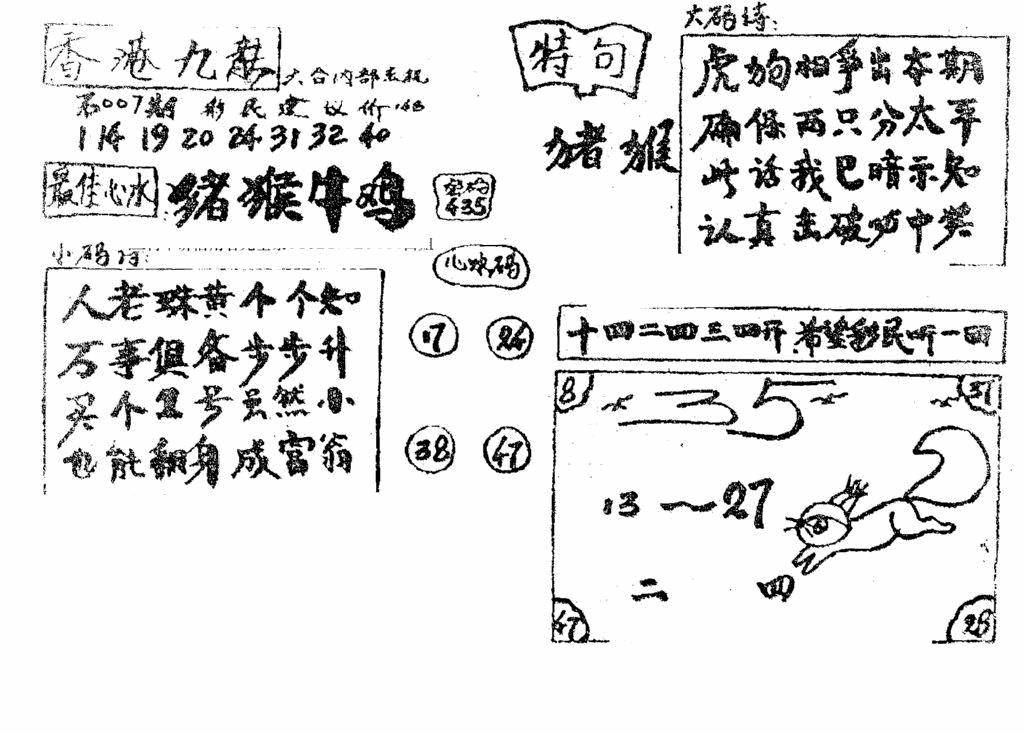 香港九龙
六合内部
007期 彩民 建议价
1 14 19 20 24 31 32 40
最佳心水
猪猴牛鸡
密码
435
小码诗:
人老珠黄个个知
万事俱备步步升
买个 号虽然小
也能翻身成富翁
心水码
17 24
38 47
特句
猪猴
大码诗:
虎狗相争出本期
确保两只分太平
此话我已暗示知
认真击破必中奖
十四二四三四开 希望彩民听一回
8 35 37
13~27
二 四
47 28